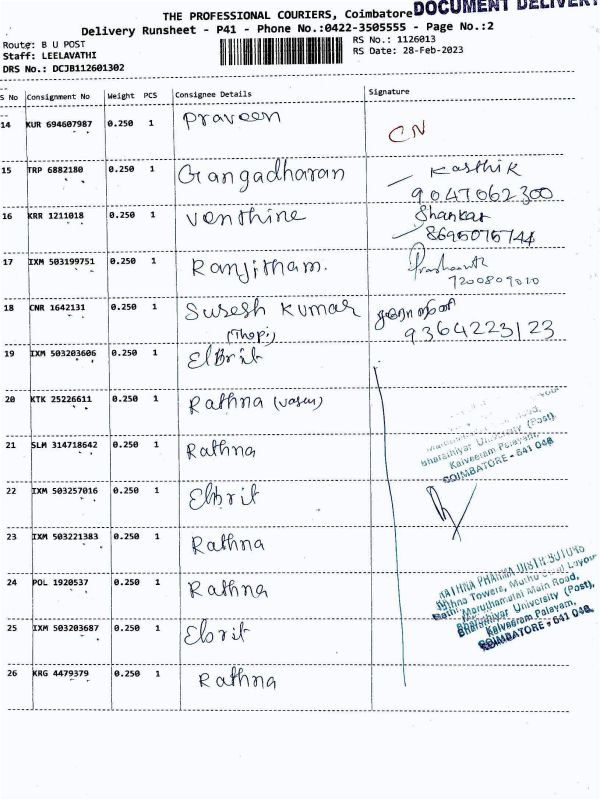 DOCUMENT DELIVERY
THE PROFESSIONAL COURIERS, Coimbatore
Delivery Runsheet - P41 - Phone No.:0422-3505555 - Page No.:2
Route: B U POST
RS No.: 1126013
Staff: LEELAVATHI
RS Date: 28-Feb-2023
DRS No.: DCJB112601302
S No Consignment No Weight PCS Consignee Details Signature
14 KUR 694607987 0.250 1 Praveen CN
15 TRP 6882180 0.250 1 Gangadharan Karthik
9047062300
16 KRR 1211018 0.250 1 Venthine Shankar
8695075744
17 IXM 503199751 0.250 1 Ranjitham. Prashaanth
7200809010
18 CNR 1642131 0.250 1 Suresh Kumar
(Thopi) 9364223123
19 IXM 503203606 0.250 1 Elbrit
20 KTK 25226611 0.250 1 Rathna (Vasu)
Bharathiyar University (Post),
Kalveeram Palayam,
COIMBATORE - 641 046
21 SLM 314718642 0.250 1 Rathna
22 IXM 503257016 0.250 1 Elbrit
23 IXM 503221383 0.250 1 Rathna
24 POL 1920537 0.250 1 Rathna
RATHNA PHARMA DISTRIBUTORS
Rathna Towers, Muthu Layout
Maruthamalai Main Road,
Bharathiyar University (Post),
Kalveeram Palayam,
COIMBATORE - 641 046.
25 IXM 503203687 0.250 1 Elbrit
26 KRG 4479379 0.250 1 Rathna